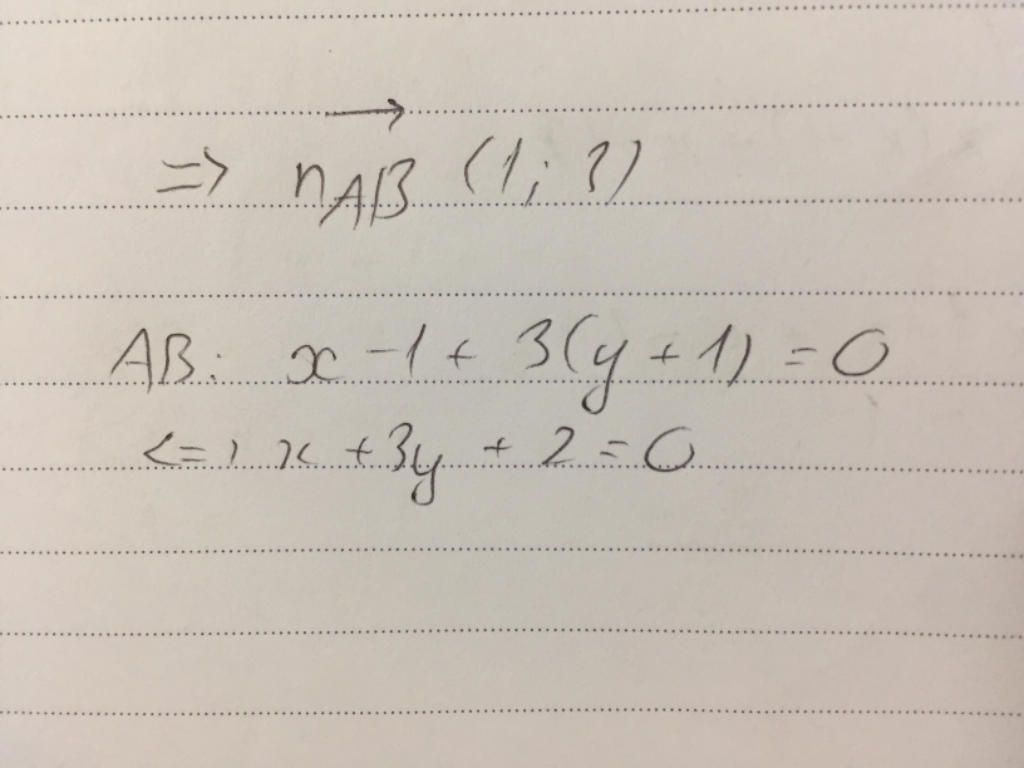 => n⃗AB (1; 3)
AB: x - 1 + 3(y + 1) = 0
<=> x + 3y + 2 = 0